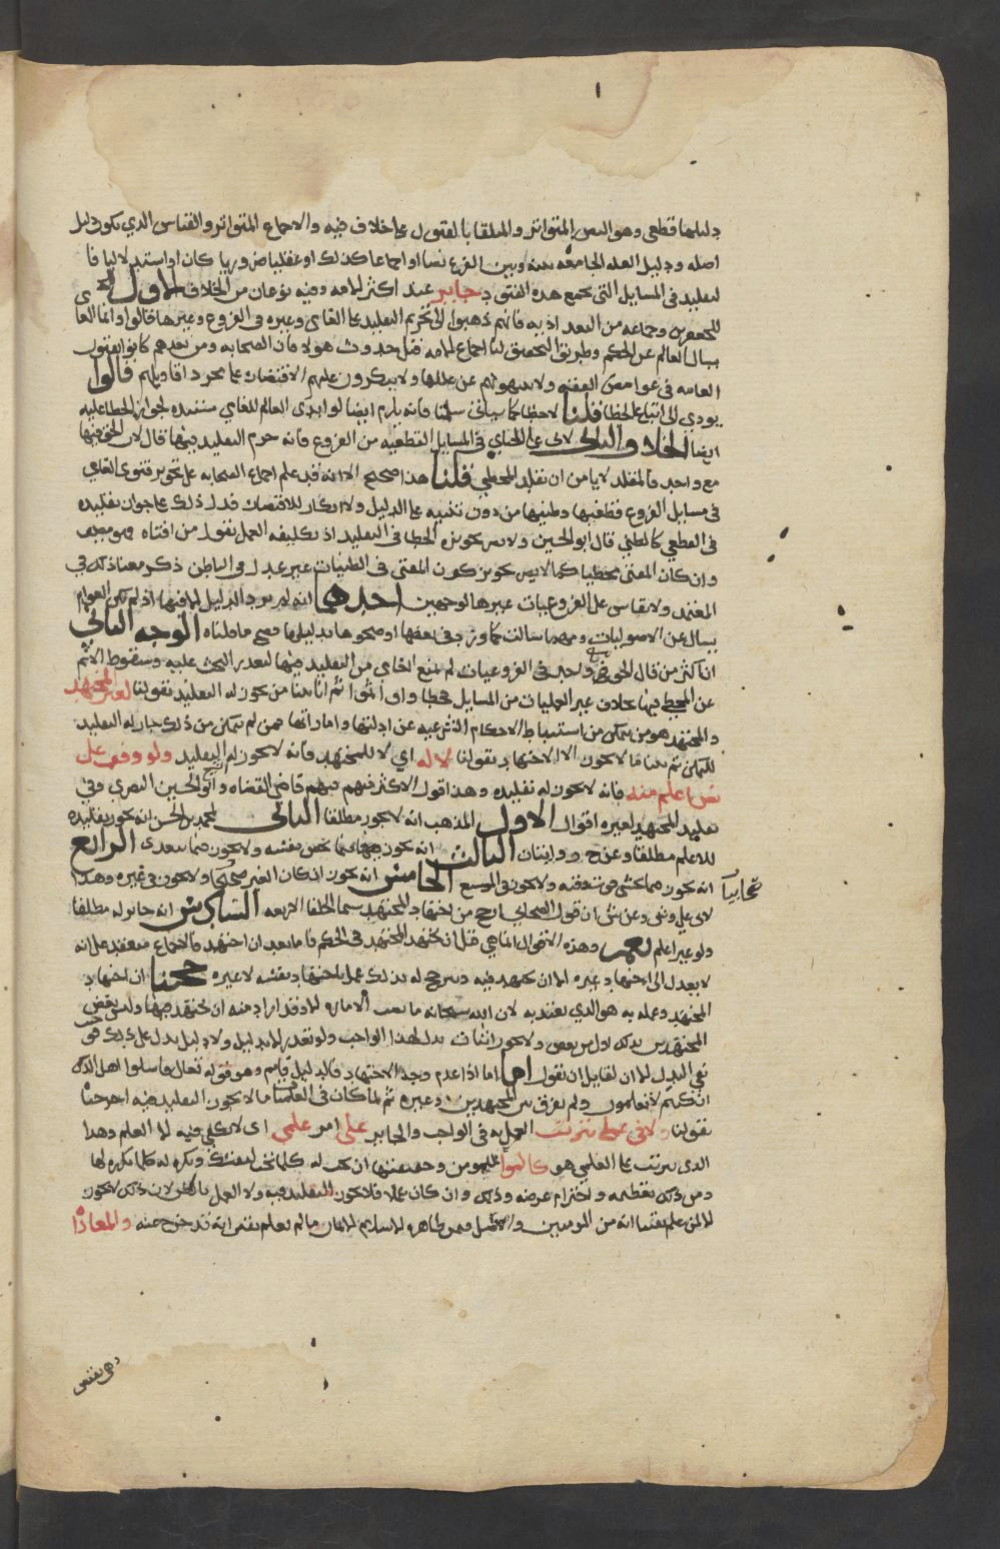 دليلها قطعي وهو النص المتواتر والمتلقا بالقبول علا خلاف فيه والاجماع المتواتر والقياس الذي يكون دليل
اصله ودليل العله الجامعه بينه وبين الفرع نصا او اجماعا كذلك او عقليا ضروريا كان او استدلاليا فا
لتقليد في المسايل التي تجمع هذه القيود جايز عند اكثر الامه وفيه نوعان من الخلاف الاول
للجعفرين وجماعه من البغداديه فانهم ذهبوا الى تحريم التقليد على العامي وغيره في الفروع وغيرها قالوا وانما العا
يسال العالم عن الحكم وطريق التحقيق لنا اجماع الامه قبل حدوث هولا فان الصحابه ومن بعدهم كانوا يفتون
العامه في غوامض الفقه ولا ينبهونهم عن عللها ولا ينكرون عليهم الاقتصار على مجرد اقاويلهم قالوا
يودي الى اتباع الخطا قلنا لا خطا كما سياتي سلمنا فانه يلزم ايضا لو ابدى العالم للعامي مستنده لجواز الخطا عليه
ايضا الخلاف الثاني لابي علي الجباي في المسايل القطعيه من الفروع فانه حرم التقليد فيها قال لان الحق فيها
مع واحد فالمقلد لا يامن ان يقلد المخطي قلنا هذا صحيح الا انه قد علم اجماع الصحابه على تجويز فتوى العامي
في مسايل الفروع قطعيها وظنيها من دون تنبيه على الدليل ولا انكار للاقتصار فدل ذلك على جواز تقليده
في القطعي كالظني قال ابو الحسين ولا يضر تجويزه الخطا في التقليد اذ تكليفه العمل بقول من افتاه وهو مصيب
وان كان المفتي مخطيا كما لا يضر تجويز كون المفتي في الظنيات غير عدل في الباطن ذكر معنا ذلك في
المعتمد ولا يقاس على الفروعيات غيرها لوجهين احدهما انه لم يرد الدليل الا فيها اذ لم تكن العوام
يسال عن الاصوليات ومهما سالت كما ورد في بعضها اوضحوها بدليلها فصح ما قلناه الوجه الثاني
ان اكثر من قال الحق مع واحد في الفروعيات لم يمنع العامي من التقليد فيها لتعذر البحث عليه وسقوط الاثم
عن المخطي فيها بخلاف غير العمليات من المسايل فخطاوه اثم ثم انا بينا من يجوز له التقليد بقولنا لغير المجتهد
والمجتهد هو من يتمكن من استنباط الاحكام الشرعيه عن ادلتها واماراتها فمن لم يتمكن من ذلك جاز له التقليد
للتمكن ثم بينا ما لا يجوز الا الاجتهاد بقولنا لا له اي لا للمجتهد فانه لا يجوز له التقليد ولو وقف على
نص اعلم منه فانه لا يجوز له تقليده وهذا قول الاكثر منهم فمنهم قاضي القضاه وابو الحسين البصري وفي
تقليد المجتهد لغيره اقوال الاول المذهب انه لا يجوز مطلقا الثاني لمحمد بن الحسن انه يجوز تقليده
للاعلم مطلقا وعن ح روايتان الثالث انه يجوز فيما يخص نفسه ولا يجوز فيما يتعدى الرابع
انه يجوز فيما يخشى فوته ولا يجوز في الموسع الخامس انه يجوز ان كان الغير صحابيا ولا يجوز في غيره وهذا
صحابيا
لابي علي وش وعن ش ان قول الصحابي ارجح من اجتهاد المجتهد سيما الخلفا الاربعه السادس انه جايز له مطلقا
ولو غير اعلم نعم وهذه الاقوال انما هي قبل ان يجتهد المجتهد في الحكم فاما بعد ان اجتهد فالاجماع منعقد على انه
لا يعدل الى اجتهاد غيره الا ان يجتهد فيه ويترجح له بذلك عمل باجتهاد نفسه لا غيره حجتنا ان اجتهاد
المجتهد وعمله به هو الذي يعتد به لان الله سبحانه ما نصب الاماره الا وقد اراد منه ان يجتهد فيها وليس بعض
المجتهدين بذلك اولى من بعض ولا يجوز اثبات بدل لهذا الواجب ولو تعذر الا بدليل ولا دليل يدل على ذلك
نفي البدل الا ان لقايل ان يقول اما اذا عدم وجه الاجتهاد فالدليل قايم وهو قوله تعالى فاسلوا اهل الذكر
ان كنتم لا تعلمون ولم يفرق بين المجتهدين وغيره ثم لما كان في العلميات ما لا يجوز التقليد فيه اخرجناه
بقولنا ولا في عملي يترتب العمل به في الواجب والجايز على امر علمي اي لا يكفي فيه الا العلم وهذا
الذي يترتب على العلمي هو كالموالاه للمومن وحقيقتها ان تحب له كلما تحب لنفسك وتكره له كلما تكره لها
ومن ذلك تعظيمه واحترام عرضه وذلك وان كان عملا فلا يجوز التقليد فيه ولا العمل بالظن لان ذلك لا يجوز
الا لمن علم يقينا انه من المومنين والاصل فيمن ظاهره الاسلام الايمان ما لم نعلم يقينا انه قد خرج عنه والمعاداه
وهي نقيض